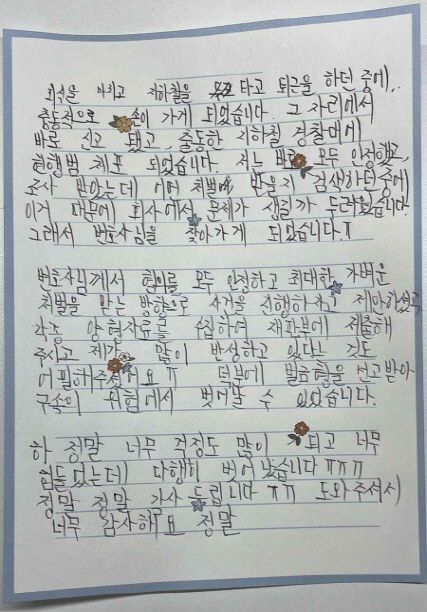 회식을 마치고 지하철을 타고 퇴근을 하던 중에,
충동적으로 손이 가게 되었습니다. 그 자리에서
바로 신고 됐고, 출동한 지하철 경찰대에
현행범 체포 되었습니다. 저는 바로 모두 인정했고,
조사 받았는데 어떤 처벌에 받을지 검색하던 중에
이거 때문에 회사에서 문제가 생길까 두려웠습니다.
그래서 변호사님을 찾아가게 되었습니다.ㅠ
변호사님께서 혐의를 모두 인정하고 최대한 가벼운
처벌을 받는 방향으로 사건을 진행하자고 제안하셨고,
각종 양형자료를 수집하여 재판부에 제출해
주시고 제가 많이 반성하고 있다는 것도
어필해주셨어요 ㅠ 덕분에 벌금형을 선고받아
구속의 위험에서 벗어날 수 있었습니다.
하 정말 너무 걱정도 많이 되고 너무
힘들었는데 다행히 벗어났습니다 ㅠㅠㅠ
정말 정말 감사 드립니다 ㅠㅠ 도와주셔서
너무 감사해요 정말